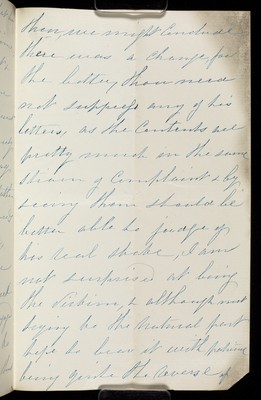 them, we might conclude
there was a change for
the better, thou need
not suppress any of his
letters, as the contents are
pretty much in the same
strain of complaint & by
seeing them should be
better able to judge of
his real state, I am
not surprised at being
the victim, & although most
trying to the natural part
hope to bear it with patience
being quite the reverse of